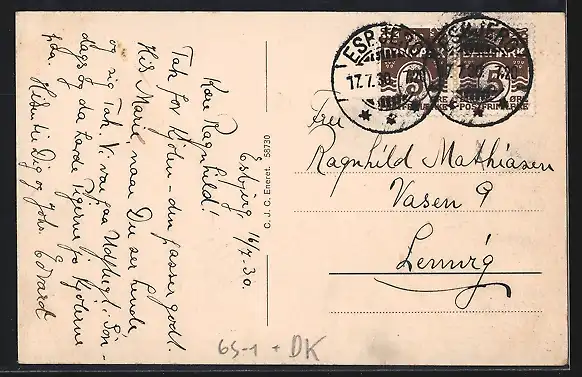 Esbjerg 16/7. 30.
Kære Ragnhild!
Tak for Kjolen - den passer godt.
Hils Marie, naar Du ser hende
og sig Tak. Vi var paa Udflugt i Søn-
dags og da havde Pigerne Kjolerne
paa.
Hilsen til Dig og Johs. Edvard
C. J. C. Eneret. 58730
ESBJERG
17.7.30.
ESBJERG
5 ØRE
POSTFRIMÆRKE
5 ØRE
POSTFRIMÆRKE
Fru
Ragnhild Mathiasen
Vasen 9
Lemvig
6S-1 + DK